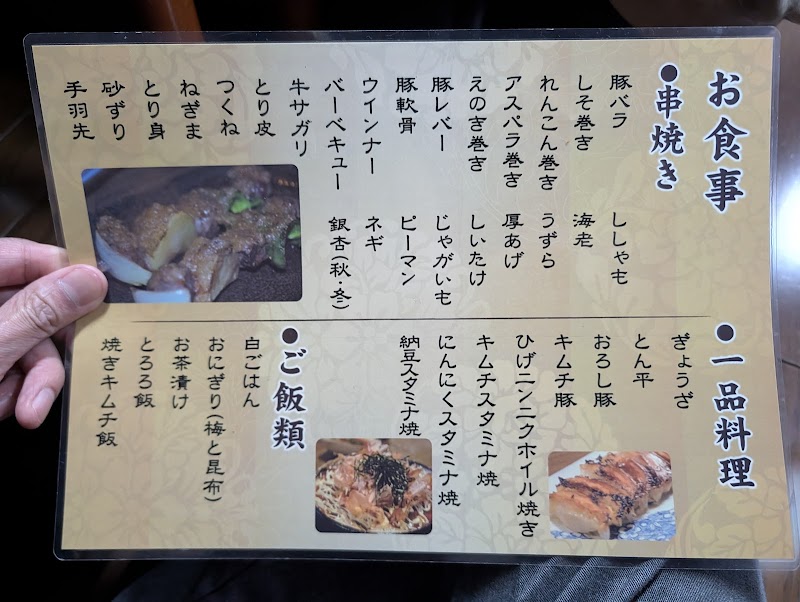 お食事
●串焼き
豚バラ
しそ巻き
れんこん巻き
アスパラ巻き
えのき巻き
豚レバー
豚軟骨
ウインナー
バーベキュー
牛サガリ
とり皮
つくね
ねぎま
とり身
砂ずり
手羽先
ししゃも
海老
うずら
厚あげ
しいたけ
じゃがいも
ピーマン
ネギ
銀杏(秋・冬)
●一品料理
ぎょうざ
とん平
おろし豚
キムチ豚
ひげニンニクホイル焼き
キムチスタミナ焼
にんにくスタミナ焼
納豆スタミナ焼
●ご飯類
白ごはん
おにぎり(梅と昆布)
お茶漬け
とろろ飯
焼きキムチ飯